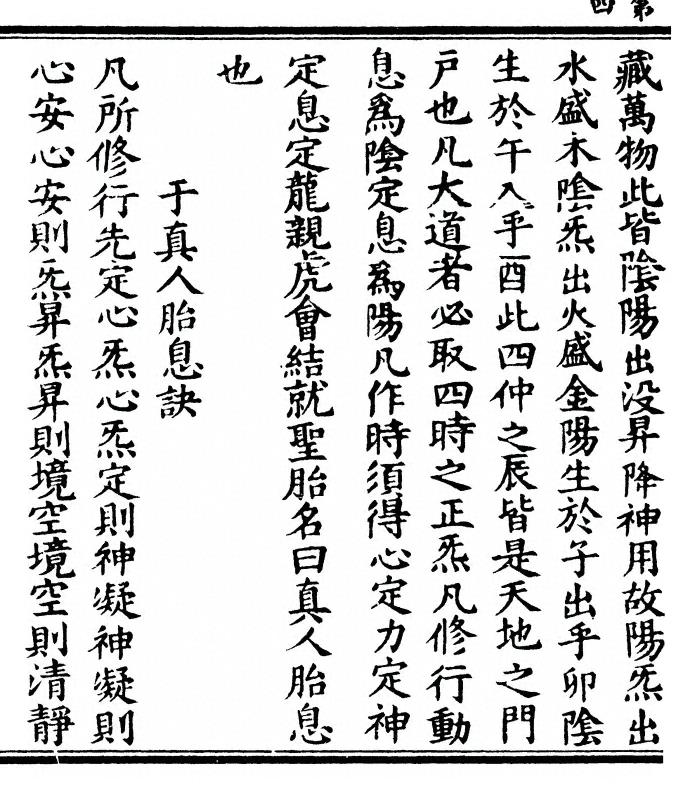 第四
藏萬物此皆陰陽出没昇降神用故陽炁出
水盛木陰炁出火盛金陽生於子出乎卯陰
生於午入乎酉此四仲之辰皆是天地之門
戸也凡大道者必取四時之正炁凡修行動
息爲陰定息爲陽凡作時須得心定力定神
定息定龍親虎會結就聖胎名曰真人胎息
也
于真人胎息訣
凡所修行先定心炁心炁定則神凝神凝則
心安心安則炁昇炁昇則境空境空則清靜